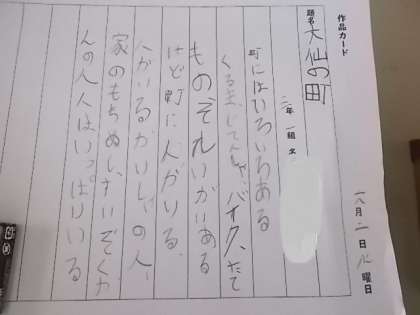 作品カード
題名 大仙の町
二年 一組 名
町にはいろいろある
くるま、じてんしゃ、バイク、たて
ものそれいがいある
けど町に人がいる。
人がいるかいしゃの人、
家のもちぬし、すいぞくか
んの人人はいっぱいいる
八月二日 曜日